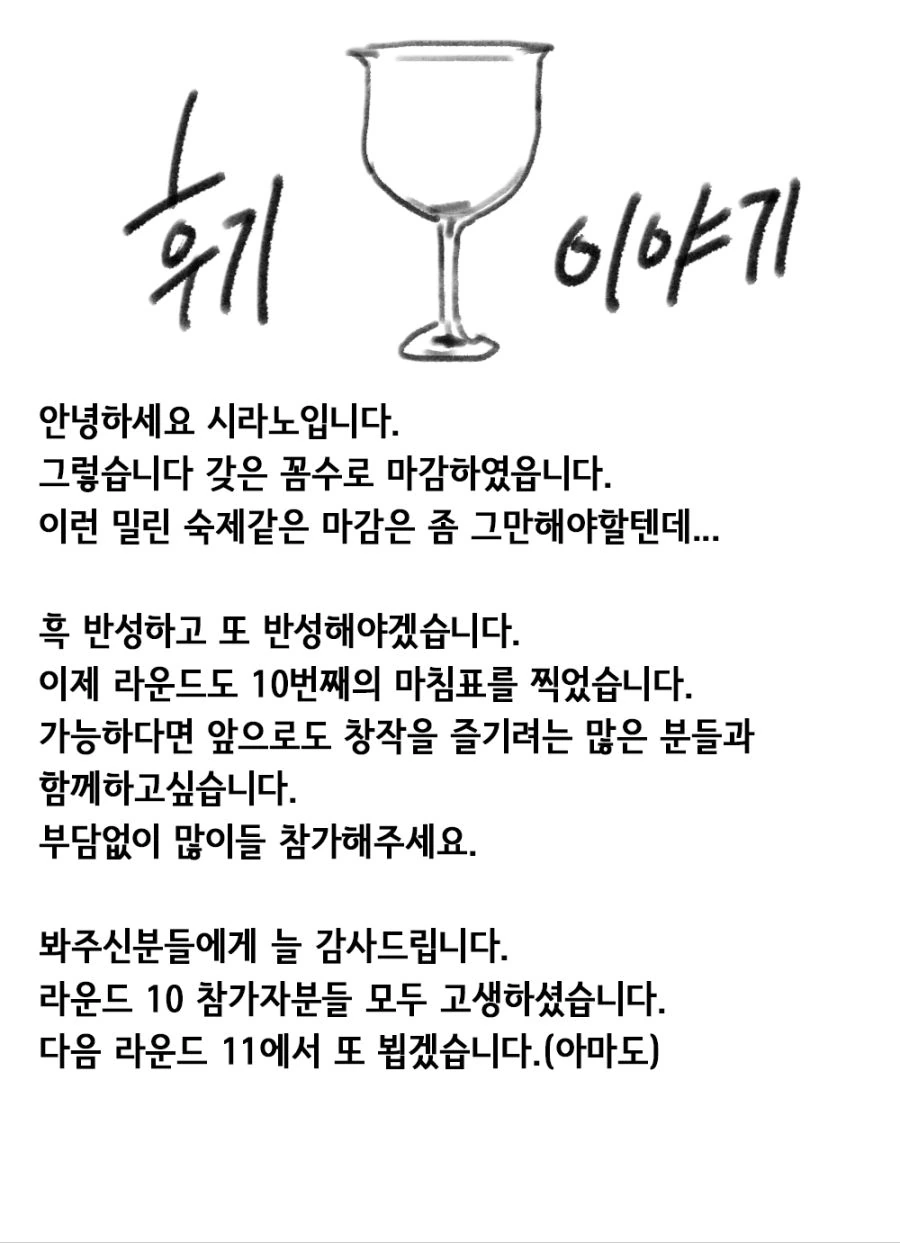 후기 이야기
안녕하세요 시라노입니다.
그렇습니다 갖은 꼼수로 마감하였읍니다.
이런 밀린 숙제같은 마감은 좀 그만해야할텐데...
흑 반성하고 또 반성해야겠습니다.
이제 라운드도 10번째의 마침표를 찍었습니다.
가능하다면 앞으로도 창작을 즐기려는 많은 분들과
함께하고싶습니다.
부담없이 많이들 참가해주세요.
봐주신분들에게 늘 감사드립니다.
라운드 10 참가자분들 모두 고생하셨습니다.
다음 라운드 11에서 또 뵙겠습니다.(아마도)